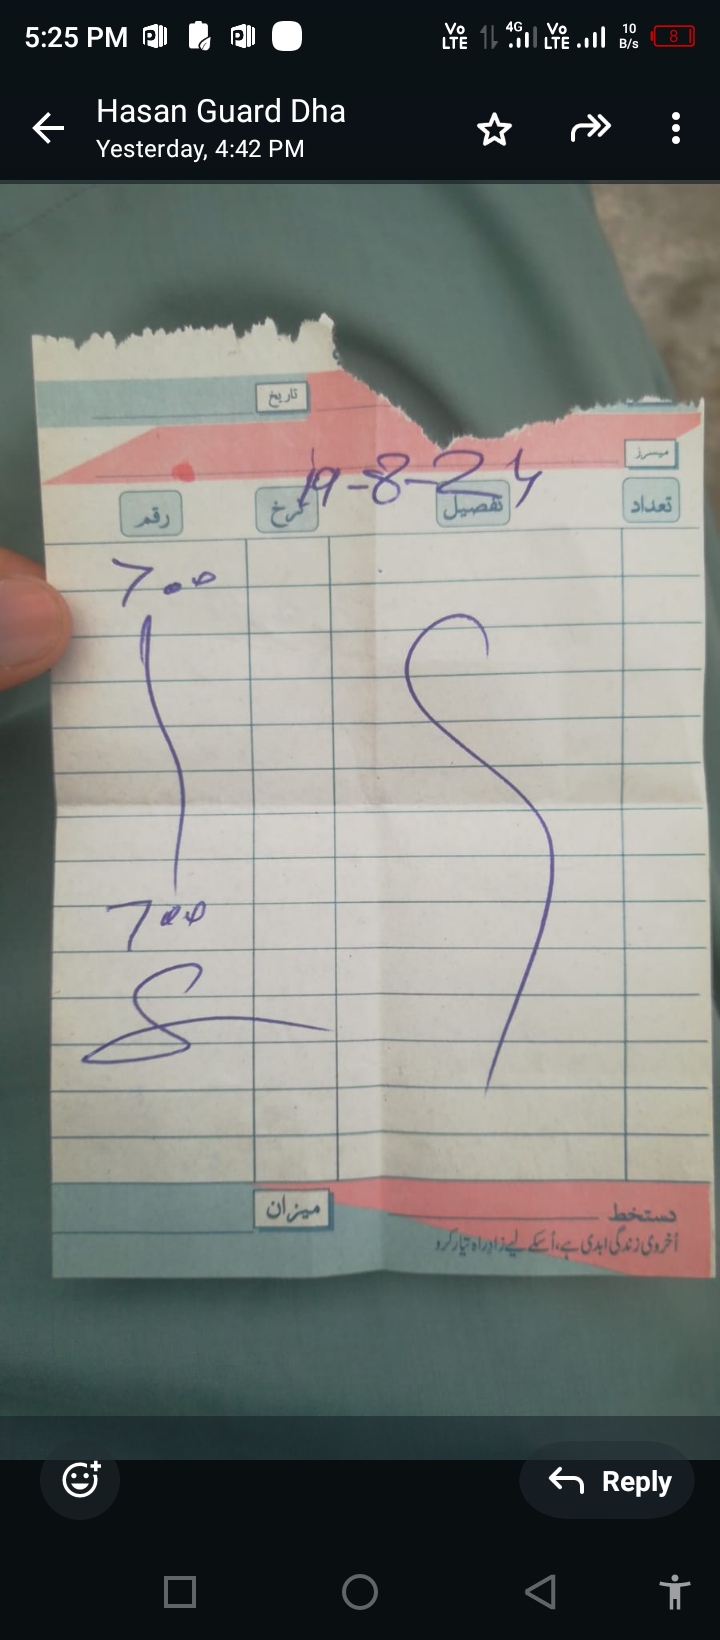 5:25 PM
Vo LTE 4G Vo LTE 10 B/s 8
Hasan Guard Dha
Yesterday, 4:42 PM
تاریخ
میسرز
19-8-24
تعداد تفصیل نرخ رقم
700
700
میزان
دستخط
اُخروی زندگی ابدی ہے، اُسکے لیے زادِ راہ تیار کرو
Reply